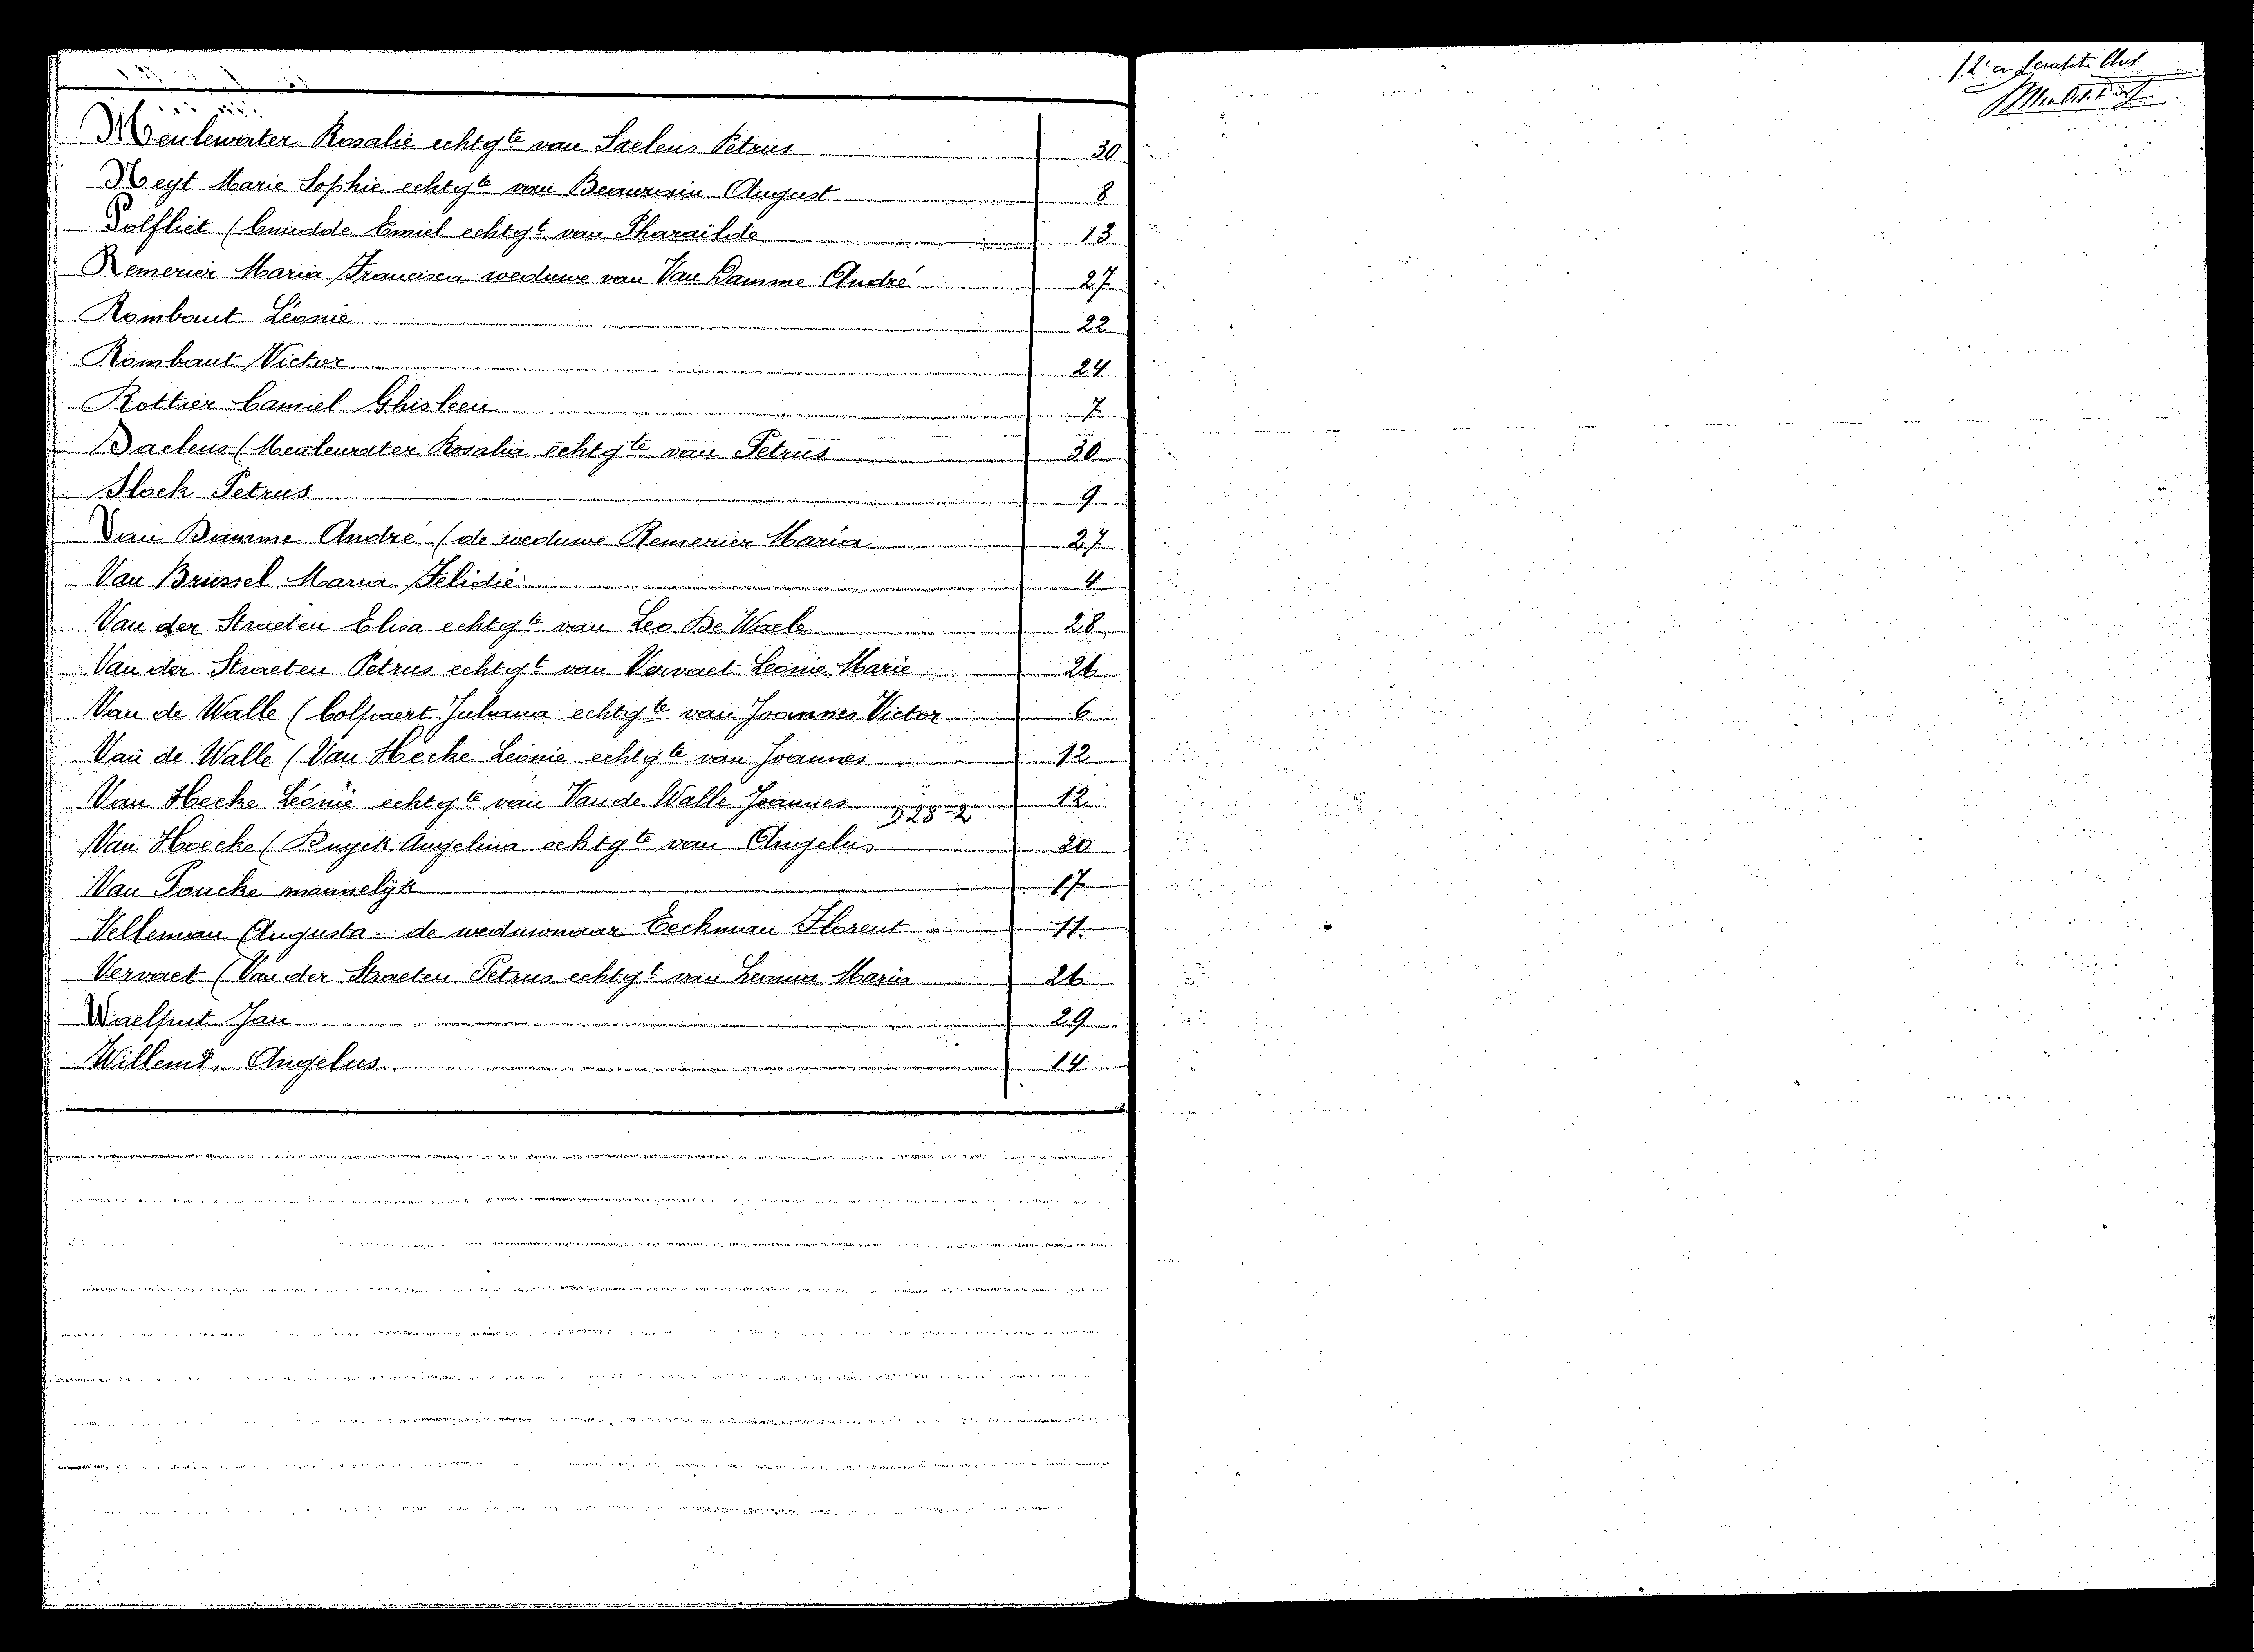 Meulewater Rosalie echtg^te van Saelens Petrus 30
Neyt Marie Sophie echtg^te van Beaurain August 8
Polfliet (Cnudde Emiel echtg^t van Pharailde 13
Remerier Maria Francisca weduwe van Van Damme André 27
Rombaut Léonie 22
Rombaut Victor 24
Rottier Camiel Ghisleen 7
Saelens (Meulewater Rosalia echtg^te van Petrus 30
Slock Petrus 9
Van Damme André (de weduwe Remerier Maria 27
Van Brussel Maria Felidie 4
Van der Straeten Elisa echtg^te van Leo De Waele 28
Van der Straeten Petrus echtg^t van Vervaet Leonie Marie 26
Van de Walle (Colpaert Juliana echtg^te van Joannes Victor 6
Van de Walle (Van Hecke Léonie echtg^te van Joannes 12
Van Hecke Léonie echtg^te van Van de Walle Joannes 12
928-2
Van Hoecke (Buyck Angelina echtg^te van Angelus 20
Van Paucke mannelijk 17
Velleman Augusta - de weduwnaar Eeckman Florent 11
Vervaet (Van der Straeten Petrus echtg^t van Leonia Maria 26
Waelput Jan 29
Willems, Angelus 14